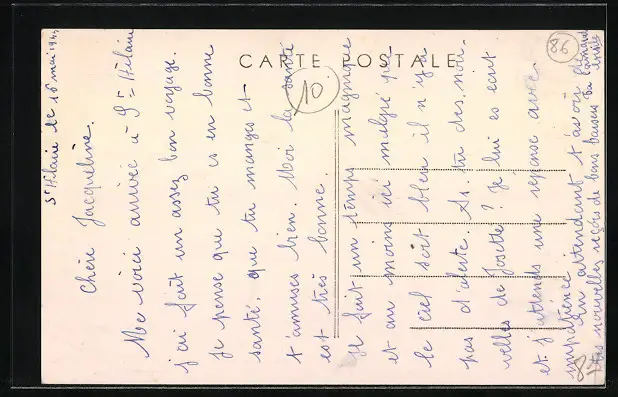 CARTE POSTALE
86
10
St Hilaire le 16 mai 194
Chère Jacqueline.
Me voici arrivée à St Hilaire
j'ai fait un assez bon voyage.
Je pense que tu es en bonne
santé, que tu manges et
t'amuses bien. Moi la santé
est très bonne.
Il fait un temps magnifique
et au moins ici malgré que
le ciel soit bleu il n'y a
pas d'alerte. As-tu des nou-
velles de Josette ? Je lui es écrit
et j'attends une réponse avec
impatience
En attendant
tes nouvelles reçois de bons baisers